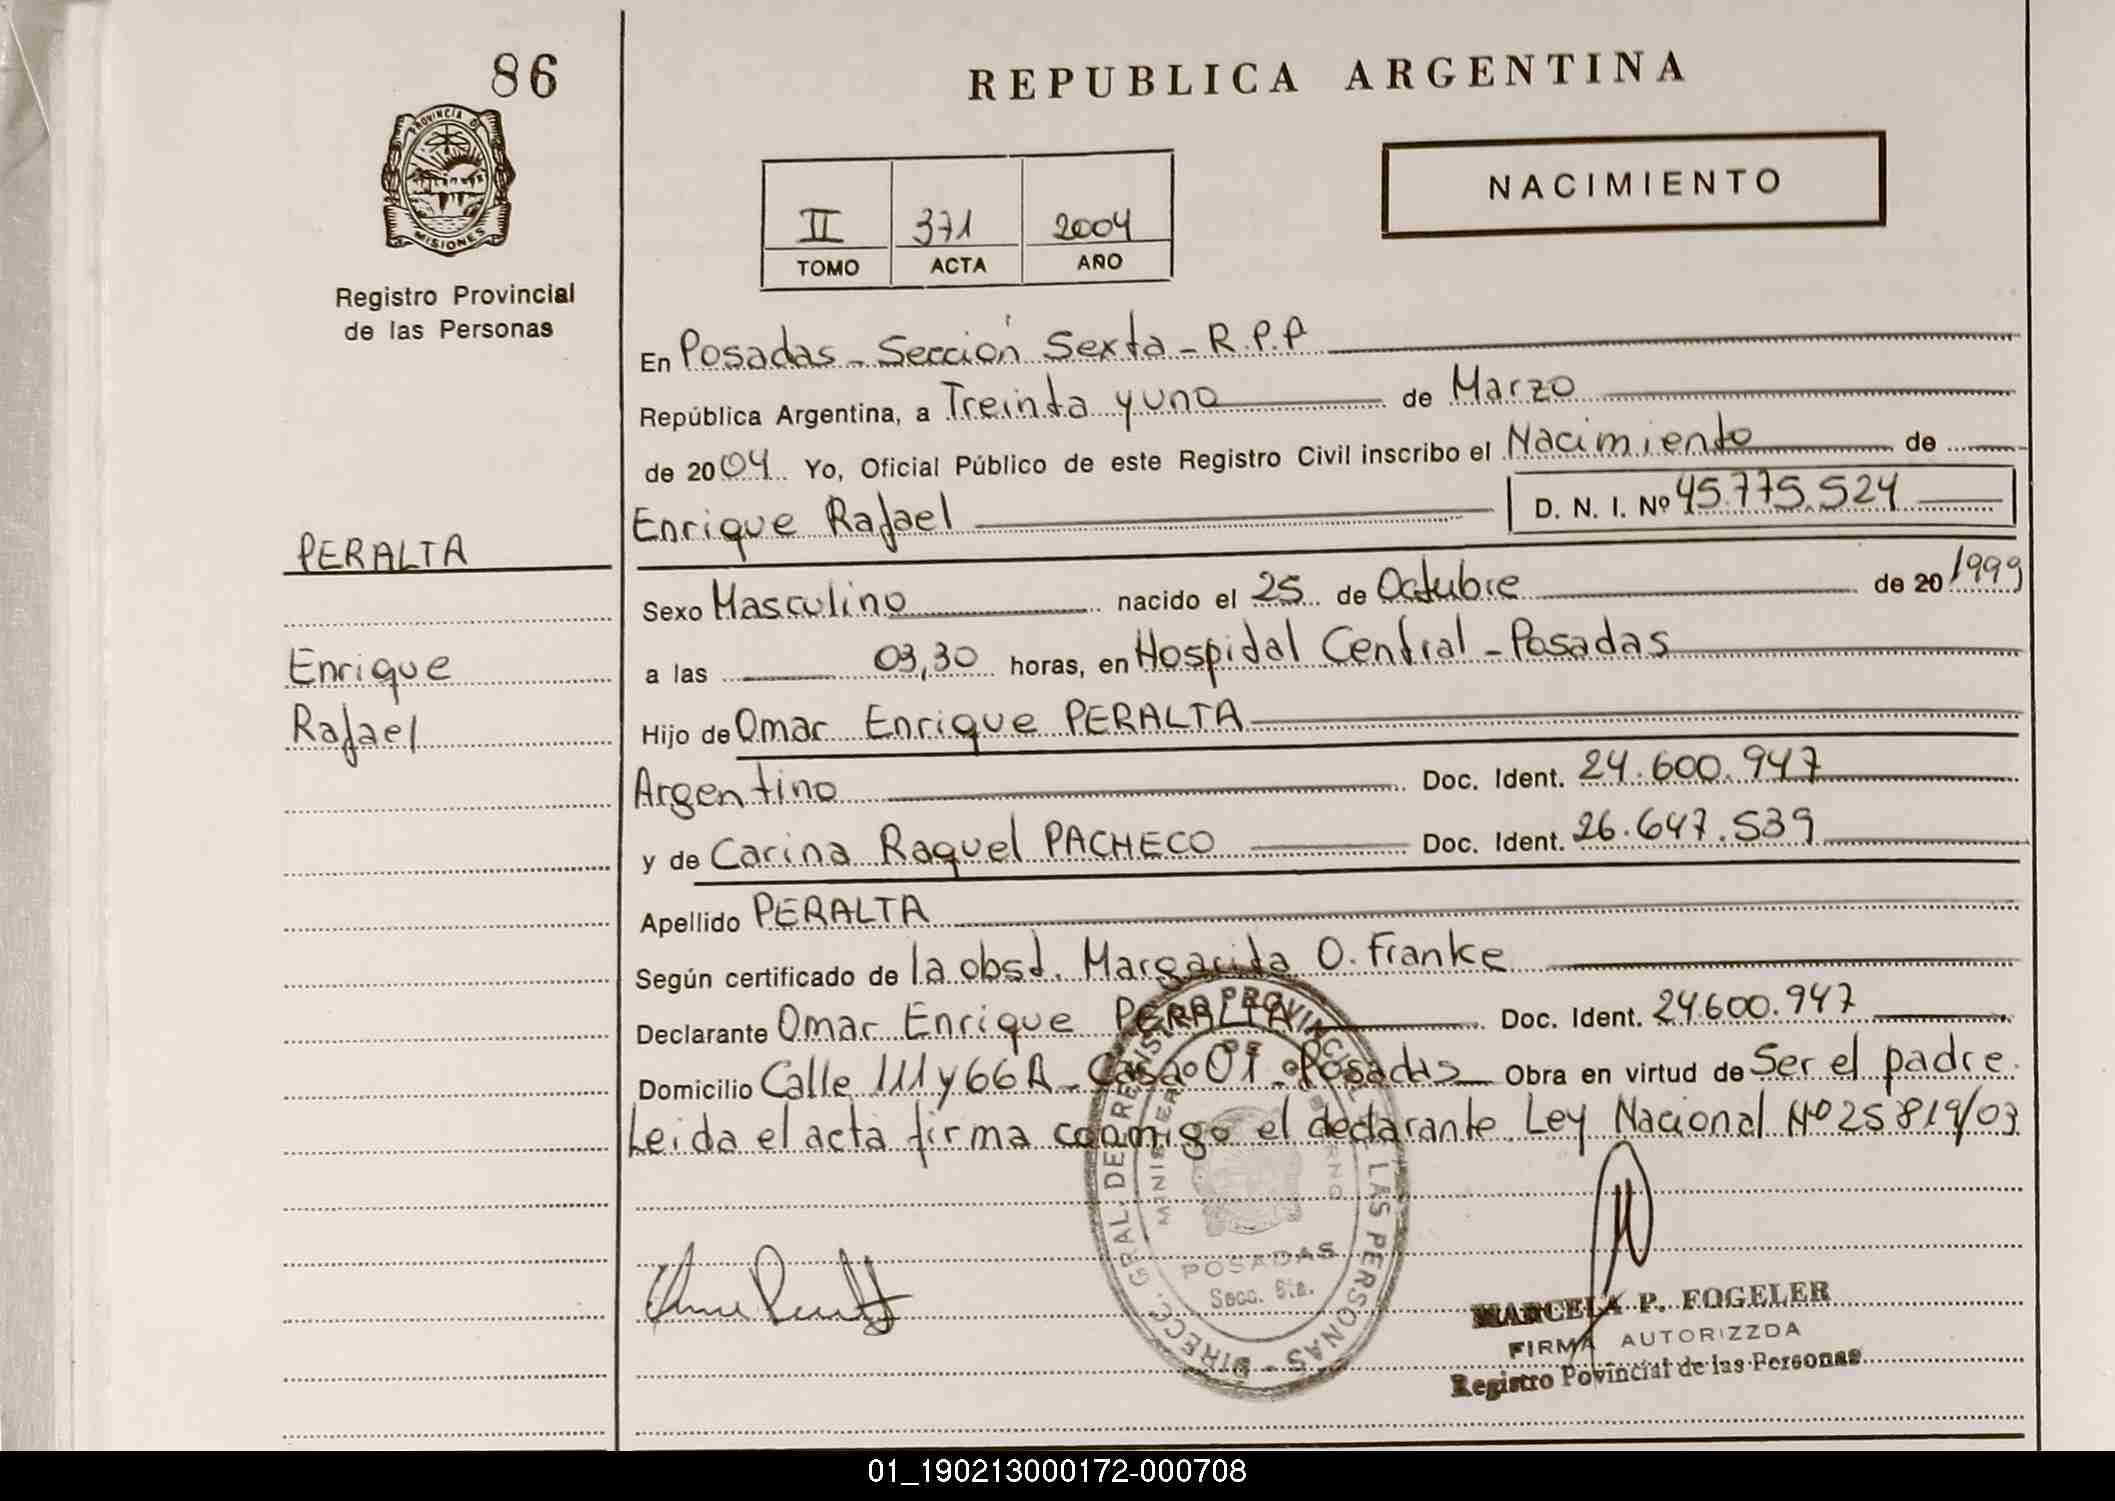 86
REPUBLICA ARGENTINA
PROVINCIA DE
MISIONES
Registro Provincial
de las Personas
NACIMIENTO
II 371 2004
TOMO ACTA AÑO
En Posadas - Sección Sexta - R.P.P
República Argentina, a Treinta y uno de Marzo
de 2004 Yo, Oficial Público de este Registro Civil inscribo el Nacimiento de
Enrique Rafael D. N. I. Nº 45.775.524
PERALTA
Sexo Masculino nacido el 25 de Octubre de 20 1999
Enrique
a las 03,30 horas, en Hospital Central - Posadas
Rafael
Hijo de Omar Enrique PERALTA
Argentino Doc. Ident. 24.600.947
y de Carina Raquel PACHECO Doc. Ident. 26.647.539
Apellido PERALTA
Según certificado de la obst. Margarita O. Franke
Declarante Omar Enrique PERALTA Doc. Ident. 24.600.947
Domicilio Calle 111 y 66 A - Casa 01 - Posadas Obra en virtud de Ser el padre.
Leida el acta firma conmigo el declarante Ley Nacional Nº 25819/03
DIRECC. GRAL. DE REGISTRO PROVINCIAL DE LAS PERSONAS
POSADAS
Secc. 6ta.
MARCELA P. FOGELER
FIRMA AUTORIZZDA
Registro Povincial de las Personas
01_190213000172-000708